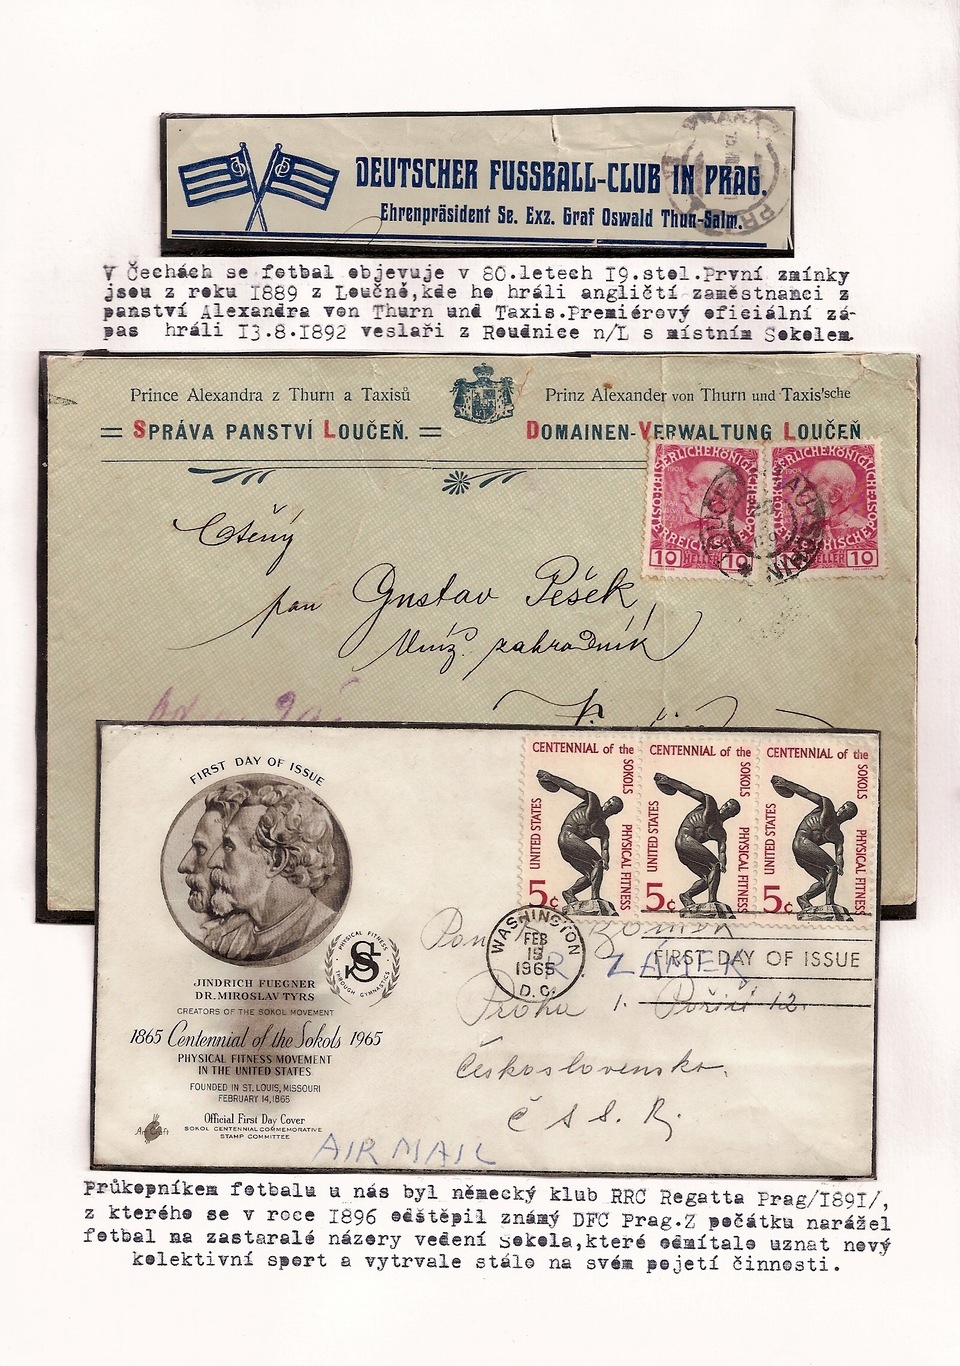 DEUTSCHER FUSSBALL-CLUB IN PRAG.
Ehrenpräsident Se. Exz. Graf Oswald Thun-Salm.
V Čechách se fotbal objevuje v 80.letech 19.stol.První zmínky
jsou z roku 1889 z Loučně,kde ho hráli angličtí zaměstnanci z
panství Alexandra von Thurn und Taxis.Premiérový oficiální zá-
pas hráli 13.8.1892 veslaři z Roudnice n/L s místním Sokolem.
Prince Alexandra z Thurn a Taxisů
SPRÁVA PANSTVÍ LOUČEŇ.
Prinz Alexander von Thurn und Taxis'sche
DOMAINEN-VERWALTUNG LOUČEŇ
1908 1908
10 HELLER 10
HELLER 10
Ctěný
pan Gustav Pešek,
zahradník
FIRST DAY OF ISSUE
PHYSICAL FITNESS
SK
THROUGH GYMNASTICS
JINDRICH FUEGNER
DR. MIROSLAV TYRS
CREATORS OF THE SOKOL MOVEMENT
1865 Centennial of the Sokols 1965
PHYSICAL FITNESS MOVEMENT
IN THE UNITED STATES
FOUNDED IN ST. LOUIS, MISSOURI
FEBRUARY 14, 1865
Official First Day Cover
SOKOL CENTENNIAL COMMEMORATIVE
STAMP COMMITTEE
Art Craft
CENTENNIAL of the SOKOLS PHYSICAL FITNESS UNITED STATES 5c
CENTENNIAL of the SOKOLS PHYSICAL FITNESS UNITED STATES 5c
CENTENNIAL of the SOKOLS PHYSICAL FITNESS UNITED STATES 5c
WASHINGTON
FEB
15
1965
D.C.
FIRST DAY OF ISSUE
Pan
R ZÁMEK
Praha 1. Poříčí 12.
Československo.
ČSSR.
AIR MAIL
Průkopníkem fotbalu u nás byl německý klub RRC Regatta Prag/1891/,
z kterého se v roce 1896 odštěpil známý DFC Prag.Z počátku narážel
fotbal na zastaralé názory vedení Sokola,které odmítalo uznat nový
kolektivní sport a vytrvale stálo na svém pojetí činnosti.